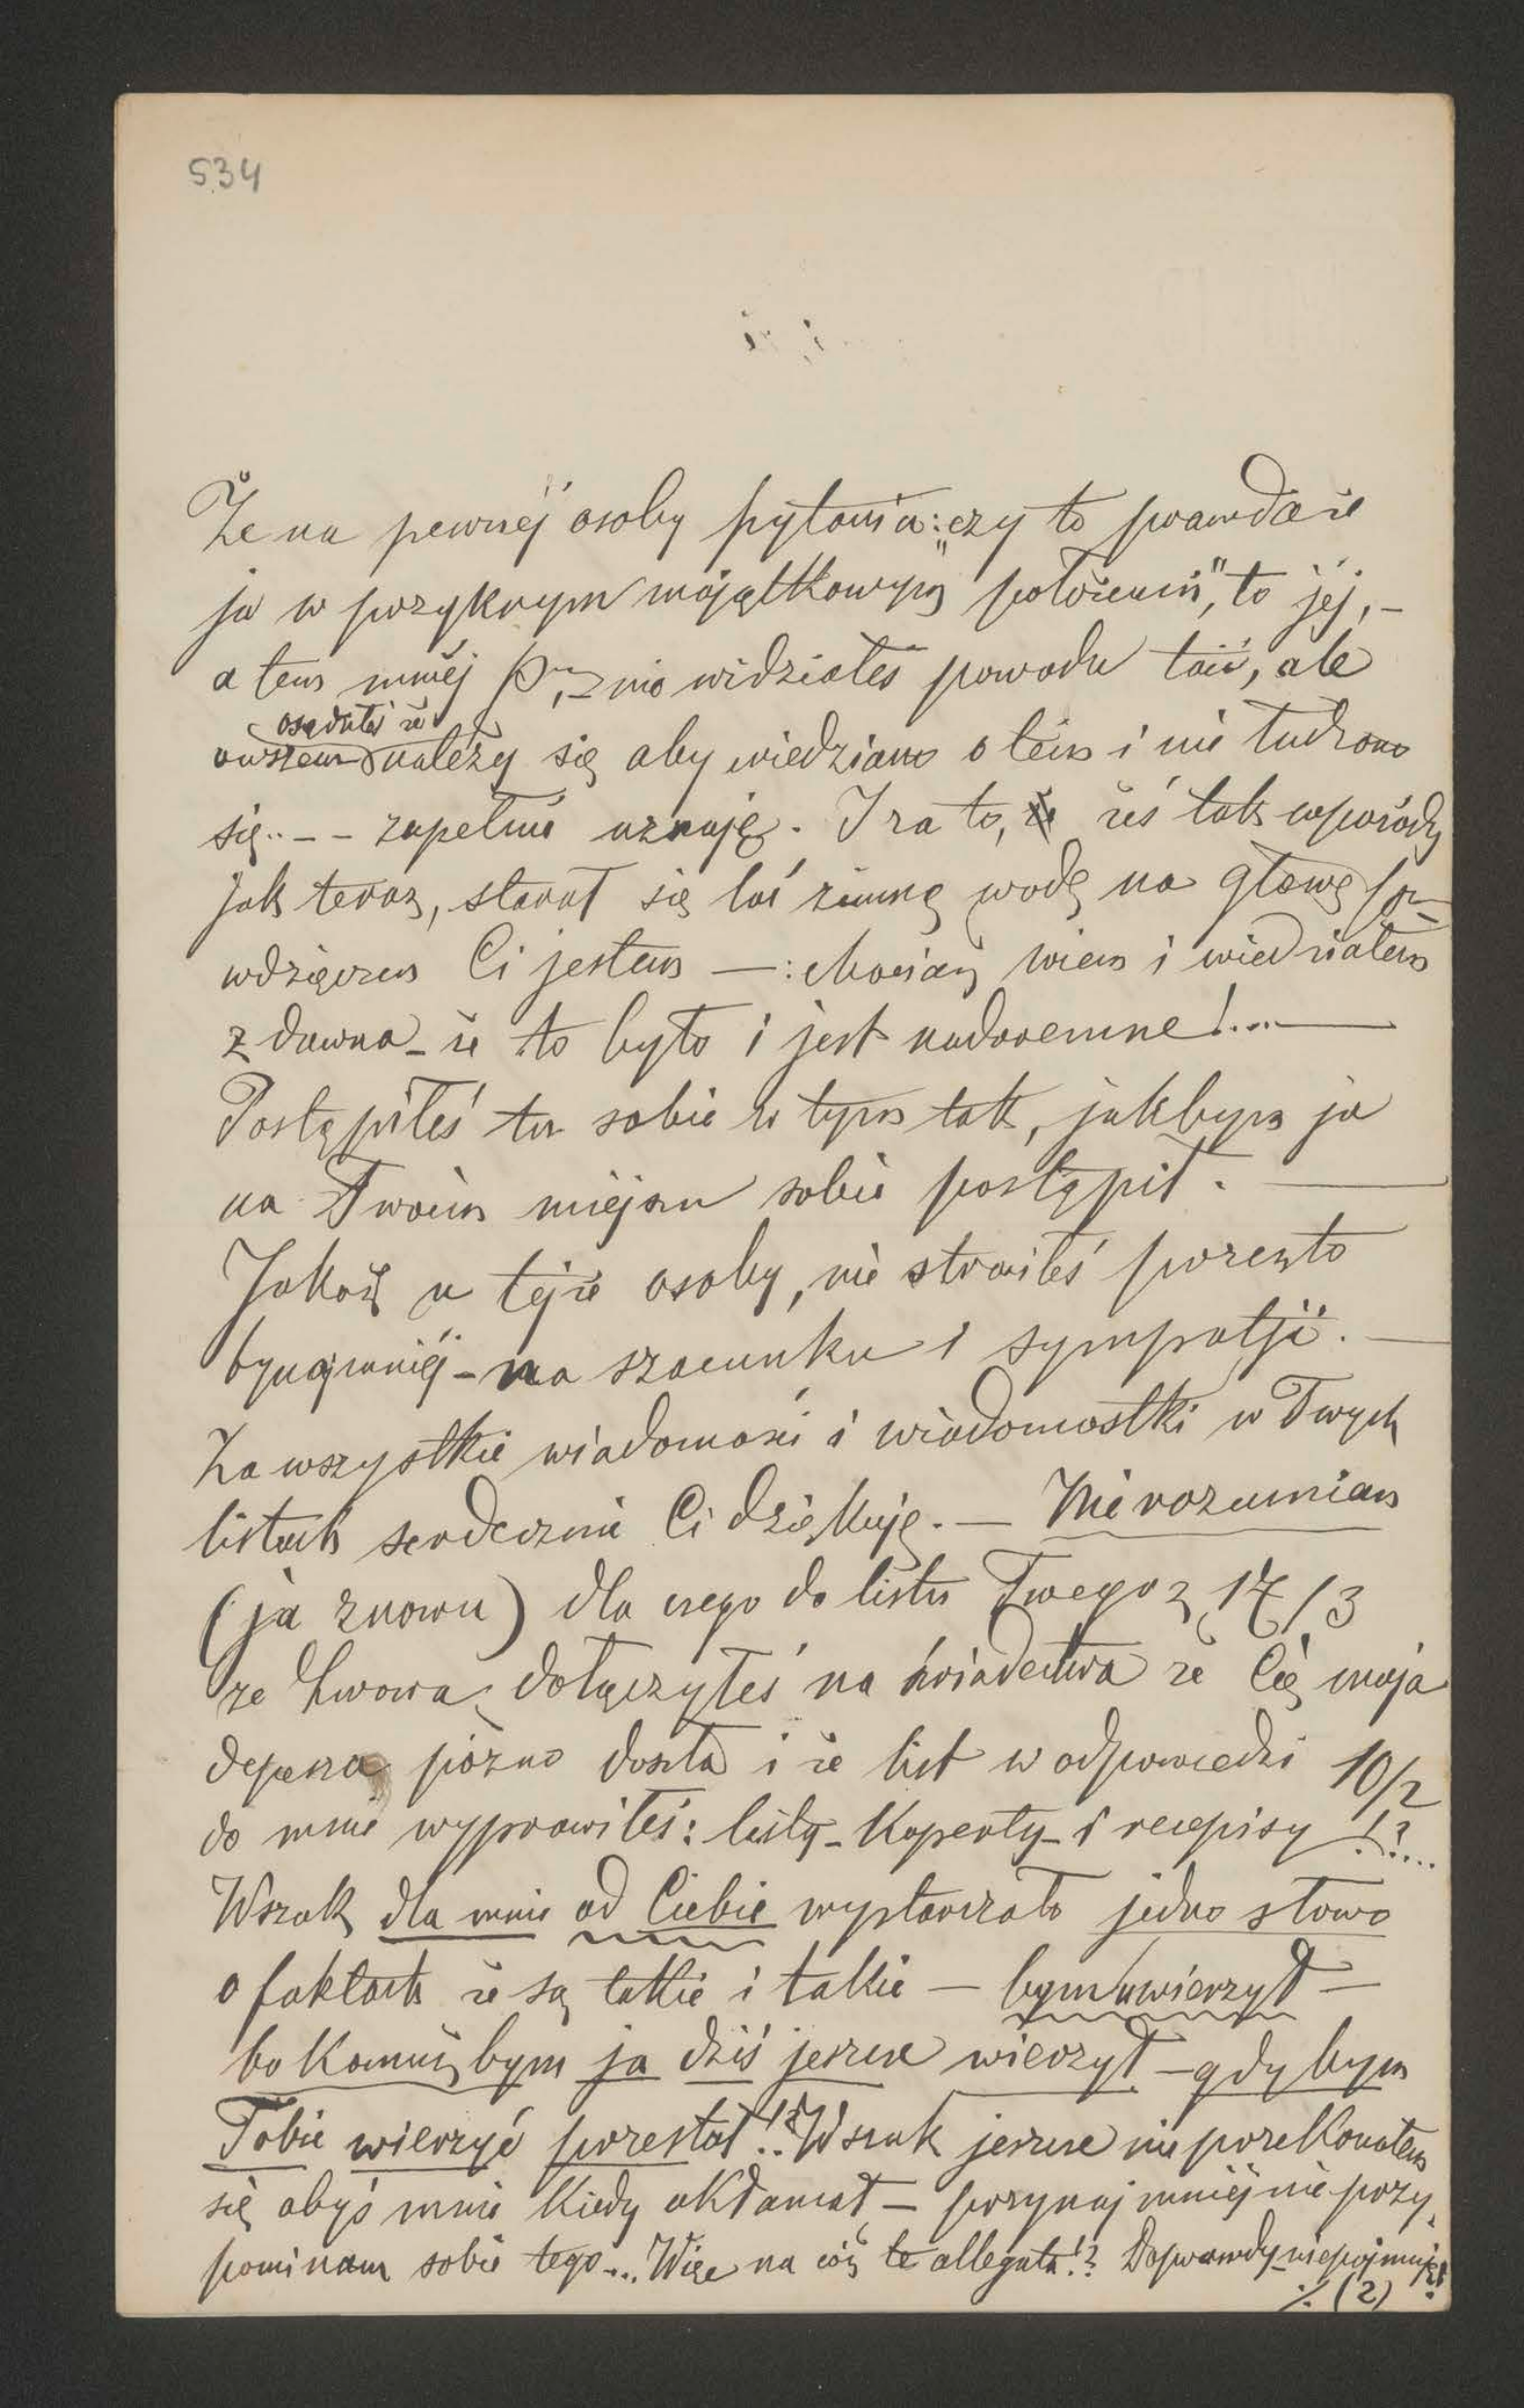 534
Że na pewnéj osoby pytania: "czy to prawda że
ja w przykrym majątkowym położeniu", to jéj, –
a tem mniéj nie widziałeś powodu taić, ale
osądziłeś że
owszem należy się aby wiedziano o tem i nie łudzono
się.. – – zupełnie uznaję. I za to, żeś tak wprzódy
jak teraz, starał się lać zimną wodę na głowę
wdzięczen Ci jestem –: chociaż wiem i wiedziałem
z dawna – że to było i jest nadaremne!... –
Postąpiłeś tu sobie w tym tak, jakbym ja
na Twoim miejscu sobie postąpił. –
Jakoż u tejże osoby, nie straciłeś przezto
bynajmniéj – na szacunku i sympatji. –
Za wszystkie wiadomości i wiadomostki w Twych
listach serdecznie Ci dziękuję. – Nie rozumiem
(ja znowu) dla czego do listu Twego z 17/3
ze Lwowa, dołączyłeś na świadectwa że Cię moja
depesza pózno doszła i że list w odpowiedzi 10/2
do mnie wyprawiłeś: listy – koperty – i recepisy !?....
Wszak dla mnie od Ciebie wystarczało jedno słowo
o faktach że są takie i takie – bym uwierzył –
bo komuż bym ja dziś jeszcze wierzył – gdybym
Tobie wierzyć przestał!?.. Wszak jeszcze nie przekonałem
się abyś mnie kiedy okłamał – przynajmniéj nie przy-
pominam sobie tego... Więc na cóż te allegata!? Doprawdy – niepojmuję!
./. (2)